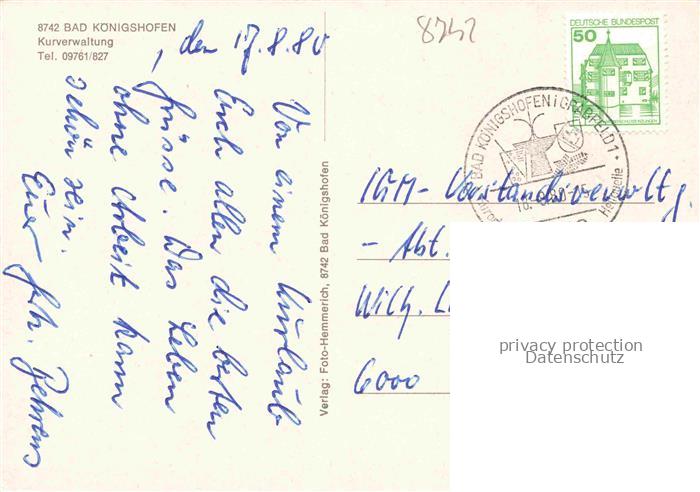 8742 BAD KÖNIGSHOFEN
Kurverwaltung
Tel. 09761/827
, den 17.8.80
Von einem Kurlaub
Euch allen die besten
Grüsse. Das Leben
ohne Arbeit kann
schön sein.
Euer
Verlag: Foto-Hemmerich, 8742 Bad Königshofen
8742
DEUTSCHE BUNDESPOST
50
BAD KÖNIGSHOFEN I GRABFELD 1
Heilquelle
IGM- Vorstandsverwltg.
- Abt.
Wilh.
6000
privacy protection
Datenschutz